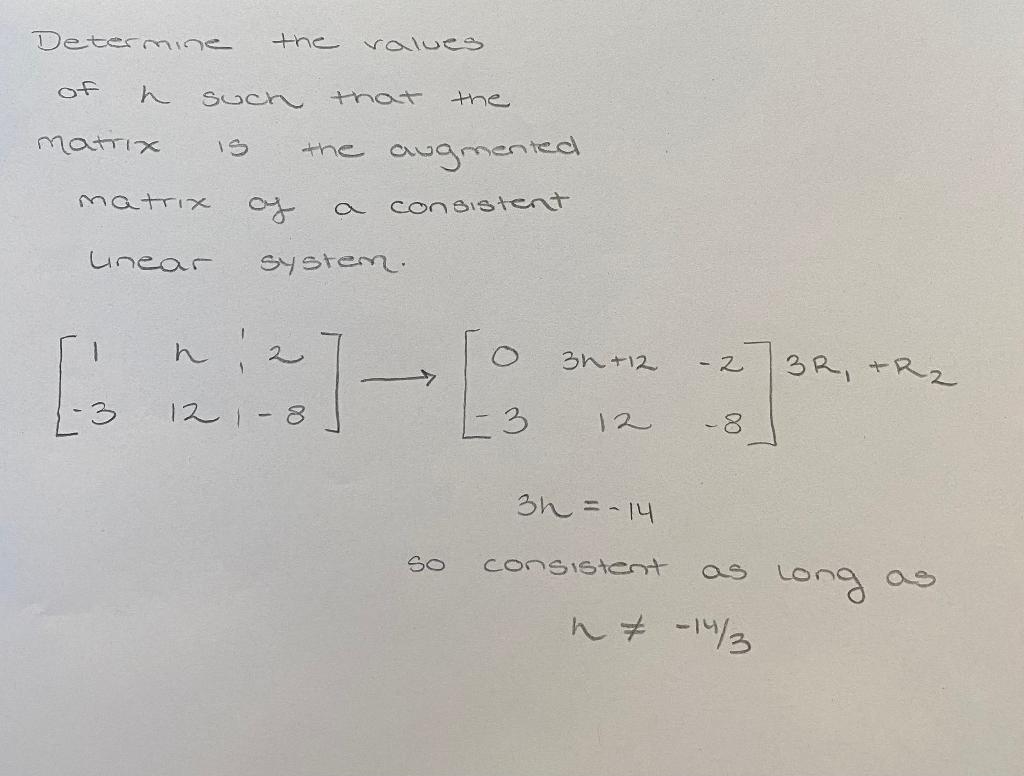 Determine the values
of h such that the
matrix is the augmented
matrix of a consistent
linear system.
[1 h ¦ 2] → [0 3h+12 -2] 3R₁ + R₂
[-3 12 ¦ -8] [-3 12 -8]
3h = -14
so consistent as long as
h ≠ -14/3